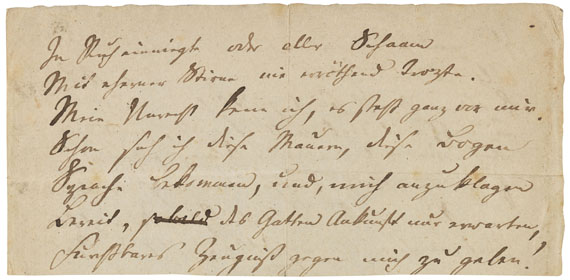 In Ruh einwiegte oder aller Schaam
Mit eherner Stirne nie erröthend Trozte.
Mein Unrecht kenn ich, es steht ganz vor mir.
Schon seh ich diese Mauern, diese Bogen
Sprache bekommen, und, mich anzuklagen
Bereit, des Gatten Ankunft nur erwarten,
Furchtbares Zeugniß gegen mich zu geben!